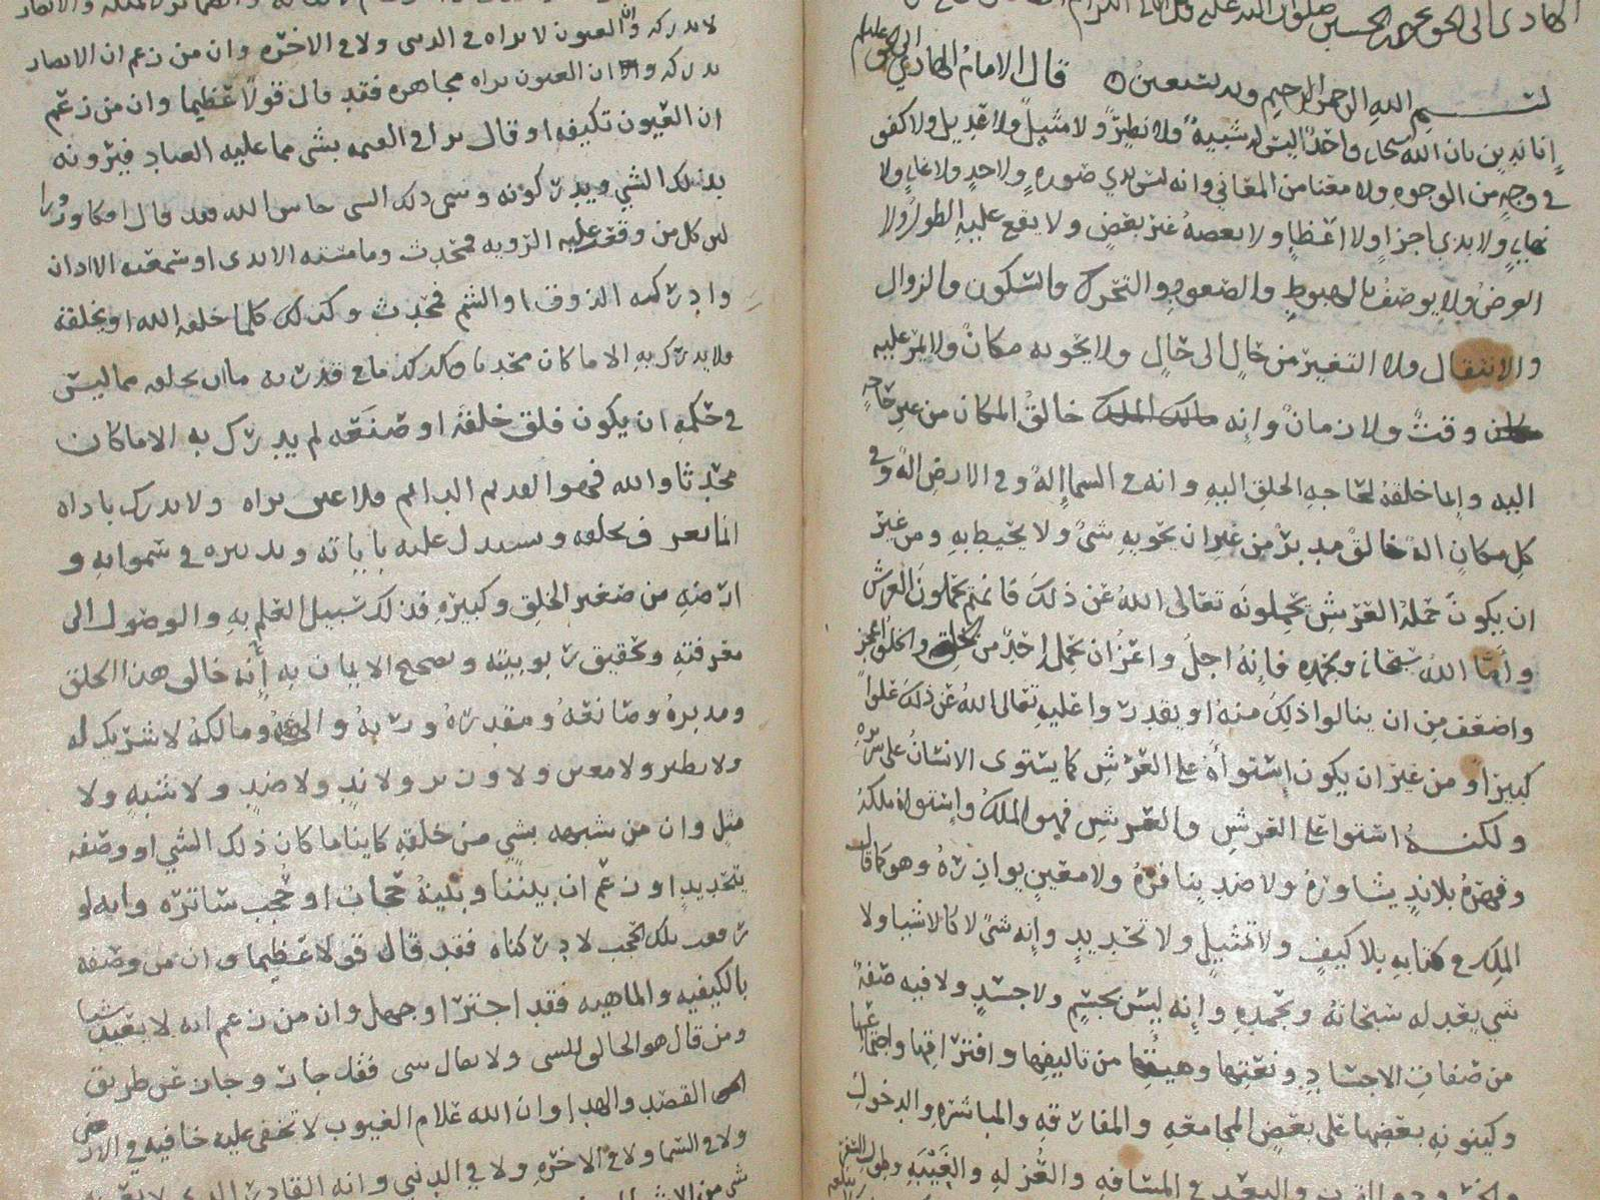 الهادي الى الحق يحيى بن الحسين صلوات الله عليه وعلى ابائه الكرام
بسم الله الرحمن الرحيم وبه نستعين قال الامام الهادي الى الحق عليه
انا ندين بان الله سبحانه واحد ليس له شبيه ولا نظير ولا مثيل ولا عديل ولا كفو
في وجه من الوجوه ولا معنا من المعاني وانه ليس بذي صوره ولا حد ولا غايه ولا
نهايه ولا بذي اجزا ولا اعضا ولا بعضه غير بعض ولا يقع عليه الطول ولا
العرض ولا يوصف بالهبوط والصعود والتحرك والسكون والزوال
والانتقال ولا التغير من حال الى حال ولا يحويه مكان ولا يمر عليه
وقت ولا زمان وانه خالق المكان من غير حاجه
اليه وانما خلقه لحاجه الخلق اليه وانه في السما اله وفي الارض اله وفي
كل مكان اله خالق مدبر من غير ان يحويه شي ولا يحيط به ومن غير
ان يكون حملة العرش يحملونه تعالى الله عن ذلك فانهم يحملون العرش
واما الله سبحانه وبحمده فانه اجل واعز ان يحمله احد من الخلق والخلق اعجز
واضعف من ان ينالوا ذلك منه او يقدروا عليه تعالى الله عن ذلك علوا
كبيرا ومن غير ان يكون استواه على العرش كما يستوى الانسان على سريره
ولكنه استوا على العرش والعرش فهو الملك واستواه ملكه
وقهره بلا ند يشاوره ولا ضد ينافره ولا معين يوازره وهو كما قال
في كتابه بلا كيف ولا تمثيل ولا تحديد وانه شي لا كالاشيا ولا
شي يعدله سبحانه وبحمده وانه ليس بجسم ولا جسد ولا فيه صفة
من صفات الاجساد ونعتها وهيئتها من تاليفها وافتراقها واجتماعها
وكينونه بعضها على بعض المجامعه والمفارقه والمباشره والدخول
والقرب والبعد في المسافه والعزله والغيبه
لا تدركه والعيون لا تراه في الدنيا ولا في الاخره وان من زعم ان الابصار
تدركه وان العيون تراه مجاهره فقد قال قولا عظيما وان من زعم
ان العيون تكيفه او قال يرا في القيمه بشي مما عليه العباد فيرونه
بذلك الشي ويدركونه وسمى ذلك الشي حاسا لله فقد قال افكا وزورا
لان كل من وقعت عليه الرويه فمحدث وما مسته الايدي او سمعته الاذان
وادركه الذوق او الشم فمحدث وكذلك كلما خلقه الله او يخلقه
ولا يدرك به الا ما كان محدثا وكذلك ما في قدرته ما ان يخلقه مما ليس
في حكمه ان يكون فلو خلقه او صنعه لم يدرك به الا ما كان
محدثا والله فهو القديم الدايم فلا عين تراه ولا يدرك باداه
انما يعرف بخلقه ويستدل عليه باياته وتدبيره في سمواته و
ارضه من صغير الخلق وكبيره فذلك سبيل العلم به والوصول الى
معرفته وتحقيق ربوبيته وتصحيح الايمان به انه خالق هذا الخلق
ومدبره وصانعه ومقدره وربه والهه ومالكه لا شريك له
ولا نظير ولا معين ولا وزير ولا ند ولا ضد ولا شبه ولا
مثل وان من شبهه بشي من خلقه كاينا ما كان ذلك الشي او وصفه
بتحديد او زعم ان بيننا وبينه حجاب او حجب ساتره وانه لو
رفعت تلك الحجب لادركناه فقد قال قولا عظيما وان من وصفه
بالكيفيه والماهيه فقد اجترا وجهل وان من زعم انه لا يعبد شيا
ومن قال هو الخالق للشي ولا يقال شي فقد حار وجار عن طريق
القصد والهدا وان الله علام الغيوب لا تخفى عليه خافيه في الارض
ولا في السما ولا في الاخره ولا في الدنيا وانه القادر الذي لا